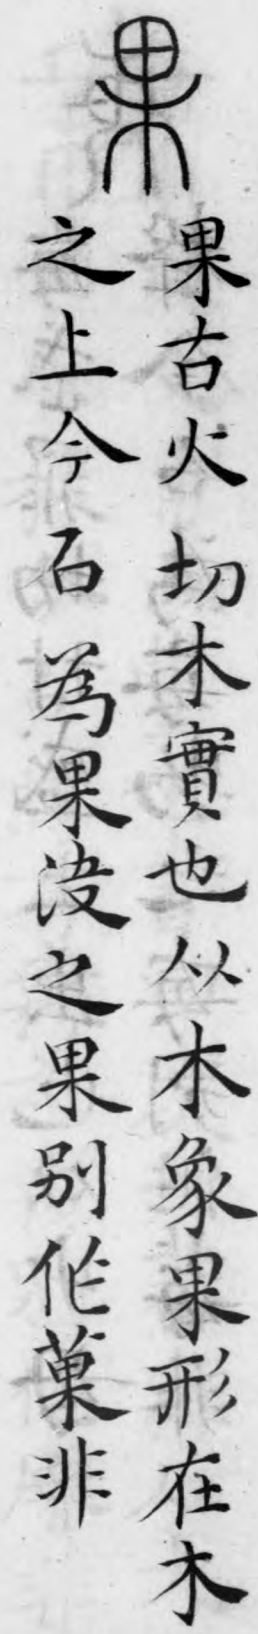 果
果古火切木實也从木象果形在木
之上今石為果决之果别作菓非